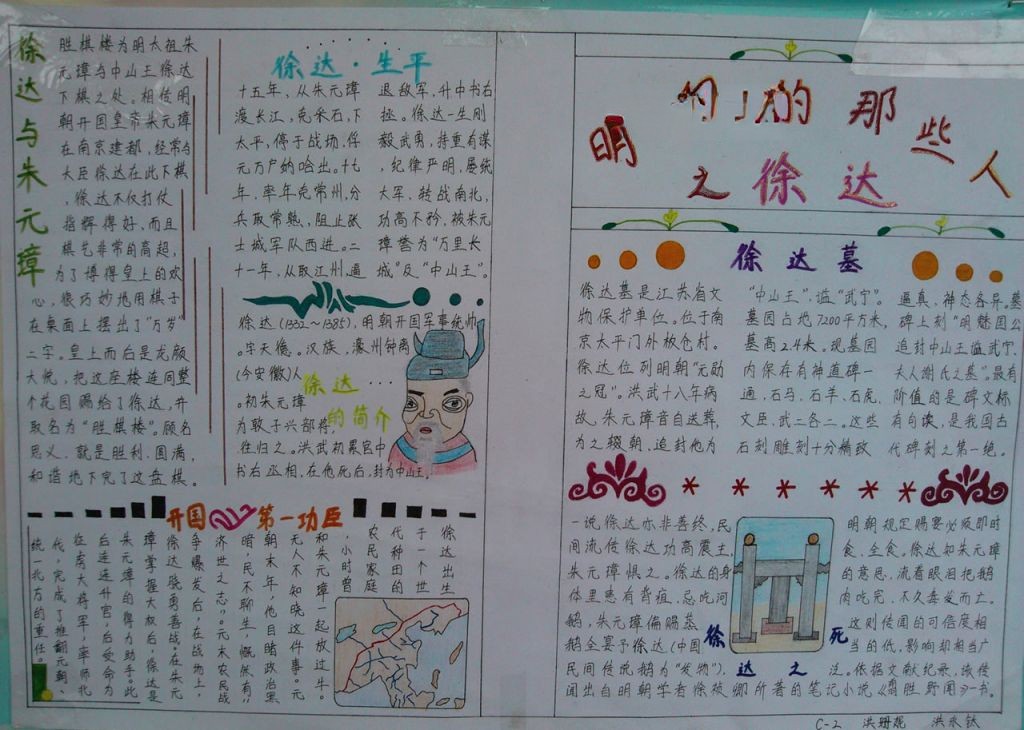 徐达与朱元璋
胜棋楼为明太祖朱
元璋与中山王徐达
下棋之处。相传明
朝开国皇帝朱元璋
在南京建都,经常与
大臣徐达在此下棋
,徐达不仅打仗
指挥得好,而且
棋艺非常的高超,
为了博得皇上的欢
心,很巧妙地用棋子
在桌面上摆出了“万岁”
二字。皇上而后是龙颜
大悦,把这座楼连同整
个花园赐给了徐达,并
取名为“胜棋楼”。顾名
思义,就是胜利、圆满,
和谐地下完了这盘棋。
徐达·生平
十五年,从朱元璋
渡长江,克采石,下
太平,俘于战场,俘
元万户纳哈出。十七
年,率军克常州,分
兵取常熟,阻止张
士诚军队西进。二
十一年,从取江州,逼
退敌军,升中书右
丞。徐达一生刚
毅武勇,持重有谋
,纪律严明,屡统
大军,转战南北,
功高不矜,被朱元
璋誉为“万里长
城”及“中山王”。
徐达(1332~1385),明朝开国军事统帅
。字天德。汉族,濠州钟离
(今安徽)人
徐达
的简介
。初朱元璋
为郭子兴部将,
往归之。洪武初累官中
书右丞相,在他死后,封为中山王。
开国第一功臣
徐达出生
于一个世
代种田的
农民家庭
,小时曾
和朱元璋一起放过牛。
无人不知晓这件事。元
朝末年,他目睹政治黑
暗,民不聊生,慨然有
济世之志。元末农民战
争爆发后,在战场上,
徐达骁勇善战。在朱元
璋掌握大权后,徐达是
朱元璋的得力助手。此
后连连升官,后受命为
征南大将军,率师北
伐,完成了推翻元朝、
统一北方的重任。
明 的 那些人
之徐达
徐达墓
徐达墓是江苏省文
物保护单位。位于南
京太平门外板仓村。
徐达位列明朝“元勋
之冠”。洪武十八年病
故。朱元璋音自送葬,
为之辍朝,追封他为
“中山王”,谥“武宁”。
墓园占地7200平方米,
墓高2.4米。现墓园
内保存有神道碑一
通,石马、石羊、石虎、
文臣、武二各二。这些
石刻雕刻十分精致
逼真,神态各异。墓
碑上刻“明魏国公
追封中山王谥武宁、
夫人谢氏之墓”。最有
价值的是碑文标
有句读,是我国古
代碑刻之第一绝。
一说徐达亦非善终,民
间流传徐达功高震主,
朱元璋惧之。徐达的身
体里患有背疽,忌吃河
鹅,朱元璋偏赐蒸
鹅全宴予徐达(中国
民间传说鹅为“发物”),
闻出自明朝学者徐祯卿所著的笔记小说《翦胜野闻》一书。
徐达之死
明朝规定赐宴必须即时
食、全食。徐达知朱元璋
的意思,流着眼泪把鹅
肉吃完,不久毒发而亡。
这则传闻的可信度相
当的低,影响却相当广
泛。依据文献纪录,该传
C-2 洪珊妮